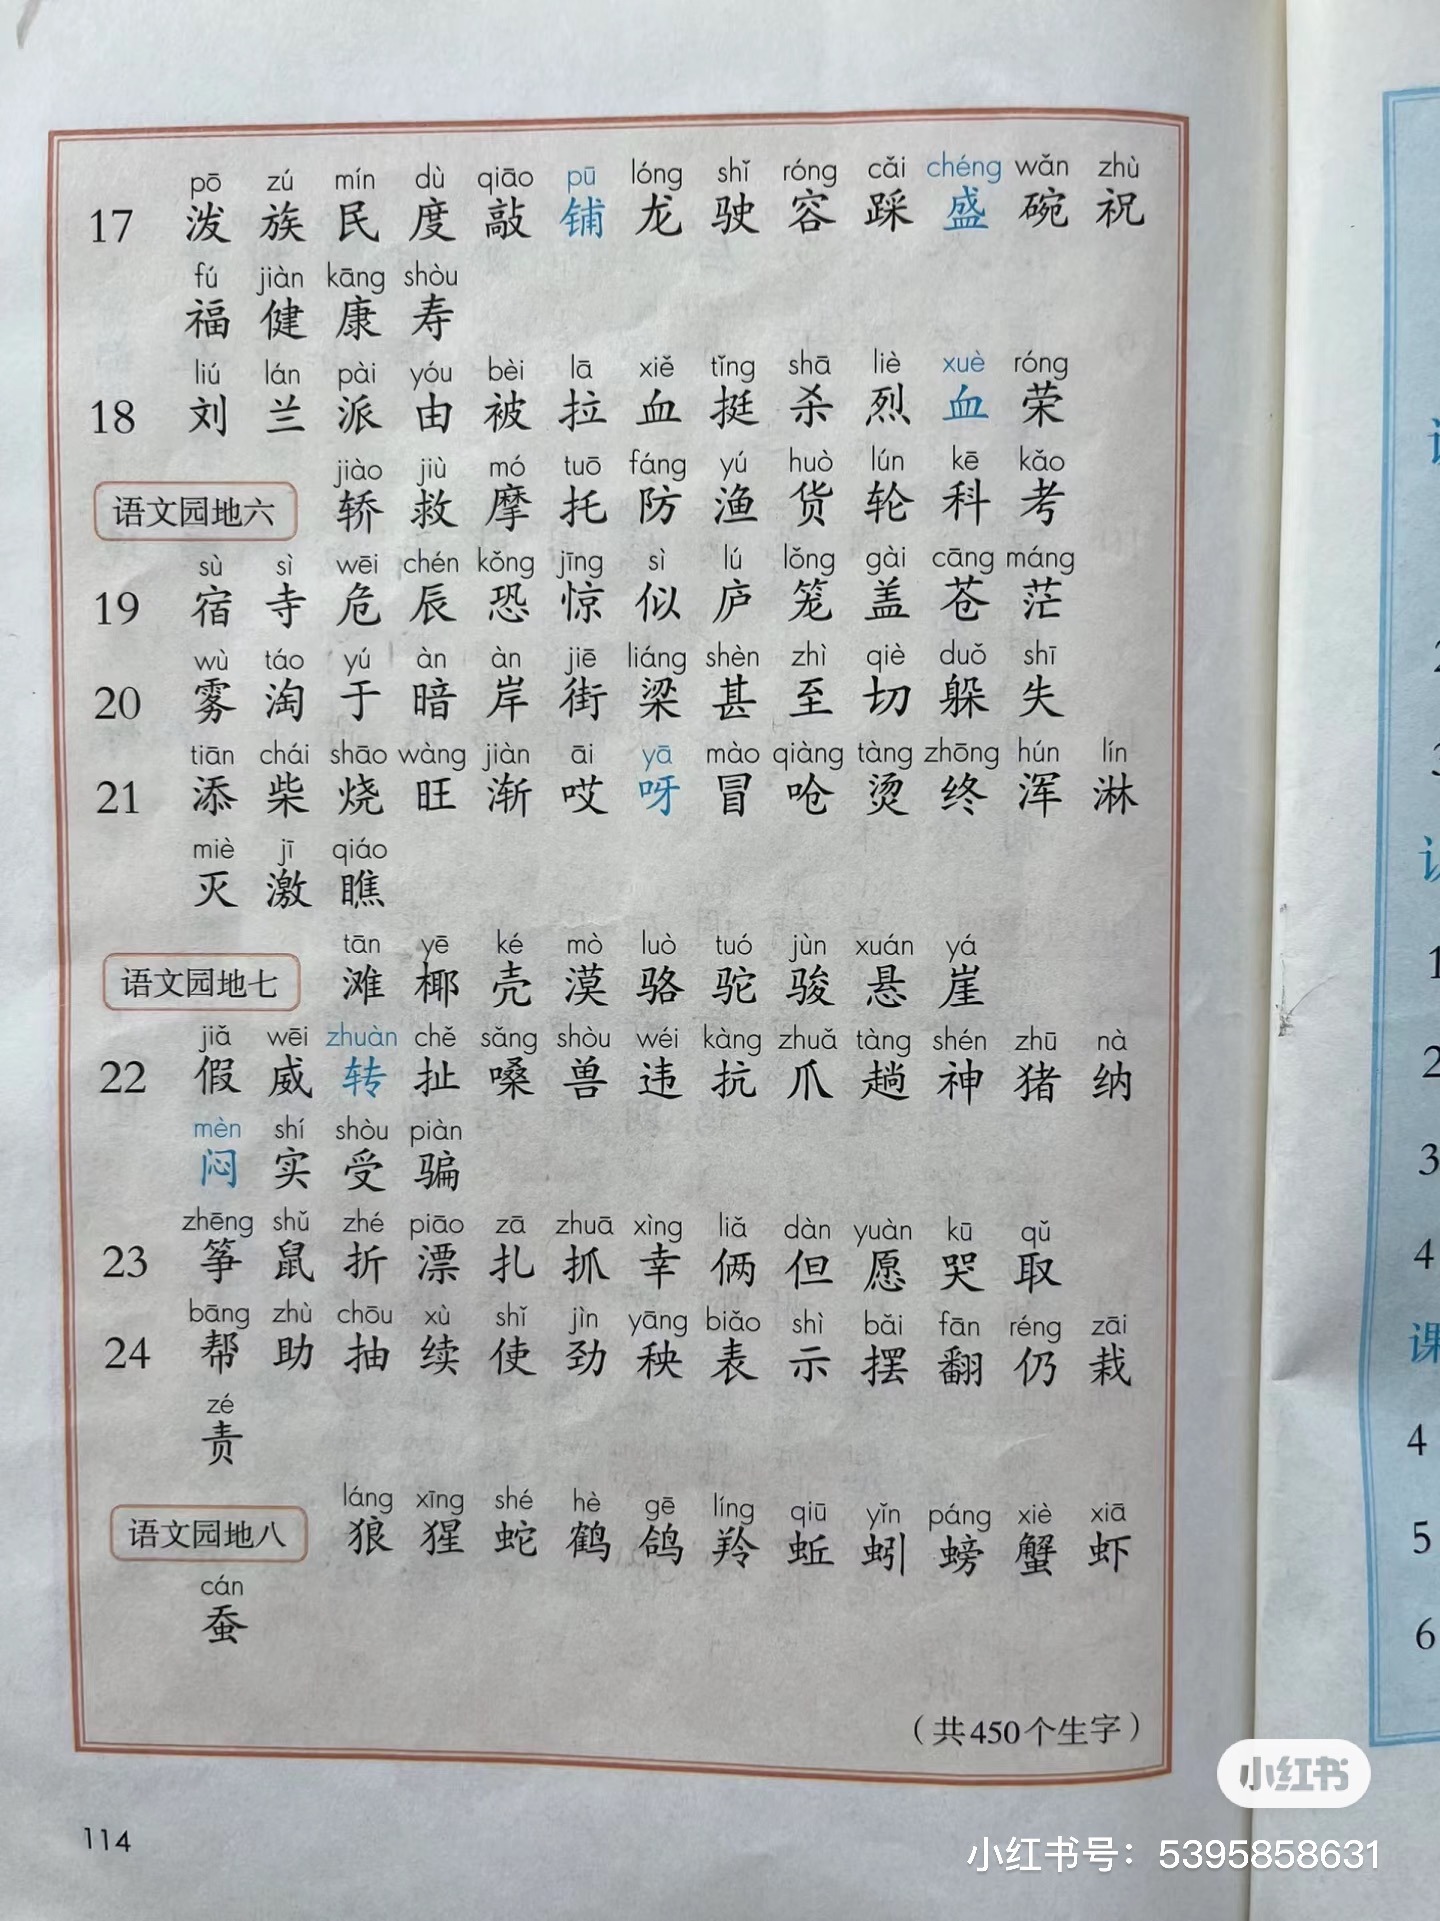 pō zú mín dù qiāo pū lóng shǐ róng cǎi chéng wǎn zhù
17 泼 族 民 度 敲 铺 龙 驶 容 踩 盛 碗 祝
fú jiàn kāng shòu
福 健 康 寿
liú lán pài yóu bèi lā xiě tǐng shā liè xuè róng
18 刘 兰 派 由 被 拉 血 挺 杀 烈 血 荣
jiào jiù mó tuō fáng yú huò lún kē kǎo
语文园地六 轿 救 摩 托 防 渔 货 轮 科 考
sù sì wēi chén kǒng jīng sì lú lǒng gài cāng máng
19 宿 寺 危 辰 恐 惊 似 庐 笼 盖 苍 茫
wù táo yú àn àn jiē liáng shèn zhì qiè duǒ shī
20 雾 淘 于 暗 岸 街 梁 甚 至 切 躲 失
tiān chái shāo wàng jiàn āi yā mào qiàng tàng zhōng hún lín
21 添 柴 烧 旺 渐 哎 呀 冒 呛 烫 终 浑 淋
miè jī qiáo
灭 激 瞧
tān yē ké mò luò tuó jùn xuán yá
语文园地七 滩 椰 壳 漠 骆 驼 骏 悬 崖
jiǎ wēi zhuàn chě sǎng shòu wéi kàng zhuǎ tàng shén zhū nà
22 假 威 转 扯 嗓 兽 违 抗 爪 趟 神 猪 纳
mèn shí shòu piàn
闷 实 受 骗
zhēng shǔ zhé piāo zā zhuā xìng liǎ dàn yuàn kū qǔ
23 筝 鼠 折 漂 扎 抓 幸 俩 但 愿 哭 取
bāng zhù chōu xù shǐ jìn yāng biǎo shì bǎi fān réng zāi
24 帮 助 抽 续 使 劲 秧 表 示 摆 翻 仍 栽
zé
责
láng xīng shé hè gē líng qiū yǐn páng xiè xiā
语文园地八 狼 猩 蛇 鹤 鸽 羚 蚯 蚓 螃 蟹 虾
cán
蚕
（共450个生字）
114
小红书
小红书号：5395858631
2
1
2
3
4
课
4
5
6